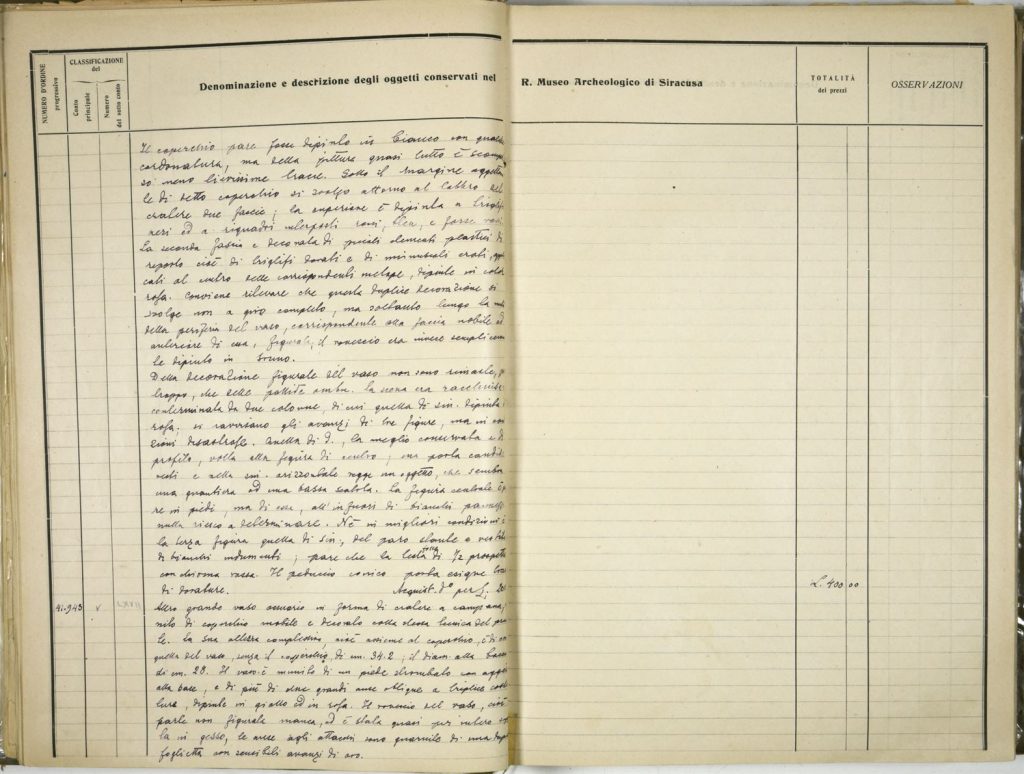 NUMERO D'ORDINE
progressivo
CLASSIFICAZIONE
del
Conto
principale
Numero
del sotto conto
Denominazione e descrizione degli oggetti conservati nel
R. Museo Archeologico di Siracusa
TOTALITÀ
dei prezzi
OSSERVAZIONI
Il coperchio pare fosse dipinto in bianco con qualche
cordonatura, ma della pittura quasi tutto è scompar
so meno lievissime tracce. Sotto il margine aggettan
te di detto coperchio si svolge attorno al labbro del
cratere due fascie; la superiore è dipinta a triglifi
neri ed a riquadri interposti rossi, bleu, e forse
La seconda fascia è decorata di piccoli elementi plastici di
riporto cioè di triglifi dorati e di minuscoli appli
cati al centro delle corrispondenti metope, dipinte in color
rosa. Conviene rilevare che questa duplice decorazione si
svolge non a giro completo, ma soltanto lungo la metà
della periferia del vaso, corrispondente alla faccia nobile ed
anteriore di essa, figurale, il rovescio era invece semplicemen
te dipinto in bruno.
Della decorazione figurale del vaso non sono rimaste, pur
troppo, che delle pallide ombre. La scena era racchiusa
conterminata da due colonne, di cui quella di sin. dipinta in
rosa. si ravvisano gli avanzi di tre figure, ma in con
dizioni disastrose. Quella di d., la meglio conservata è di
profilo, volta alla figura di centro; porta candide
vesti e nella sin. orizzontale regge un oggetto, che sembra
una guantiera od una bassa scatola. La figura centrale è pu
re in piedi, ma di essa, all'infuori di bianchi
nulla riesco a determinare. Nè in migliori condizioni è
la terza figura quella di sin., del paro stante e vestita
di bianchi indumenti; pare che la testa sia di 3/4 prospetto
con chioma rossa. Il peduccio conico porta esigue tracce
di dorature. Acquist. d.º per £.
L. 400,00
41.943 V XXVII
Altro grande vaso cinerario in forma di cratere a campana,
nito di coperchio mobile e decorato colla stessa tecnica del
te. La sua altezza complessiva, cioè assieme al coperchio, è di
quella del vaso, senza il coperchio, di cm. 34.2; il diam. alla bocca
di cm. 28. Il vaso è munito di un piede strombato con
alla base, e di più di due grandi anse oblique a triplice
lura, dipinte in giallo ed in rosa. Il rovescio del vaso, cioè
parte non figurale manca, ed è stata quasi per intero
la in gesso, le anse agli attacchi sono guarnite di una
foglietta con sensibili avanzi di oro.